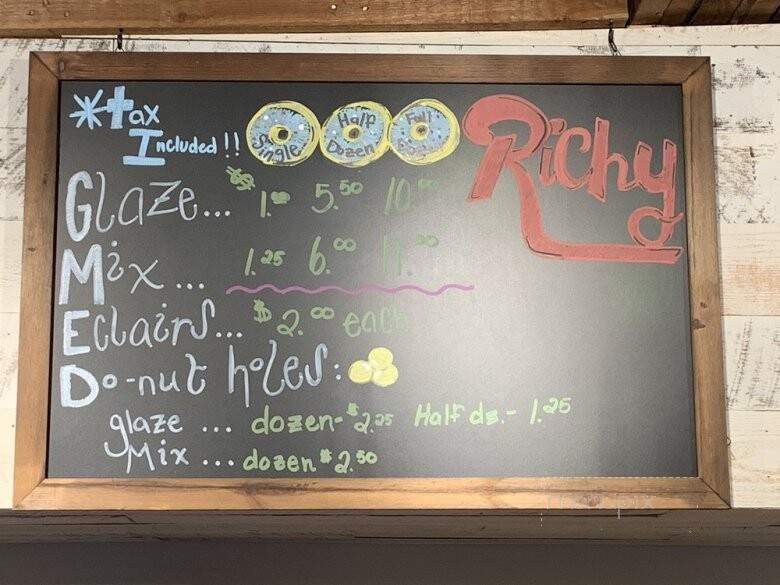 *tax
Included!!
Single
Half
Dozen
Full
Richy
Glaze... $1.00 5.50 10.00
Mix... 1.25 6.00 11.00
Eclairs... $2.00 each
Do-nut holes:
glaze ... dozen- $2.25 Half dz.- 1.25
Mix ... dozen $2.50